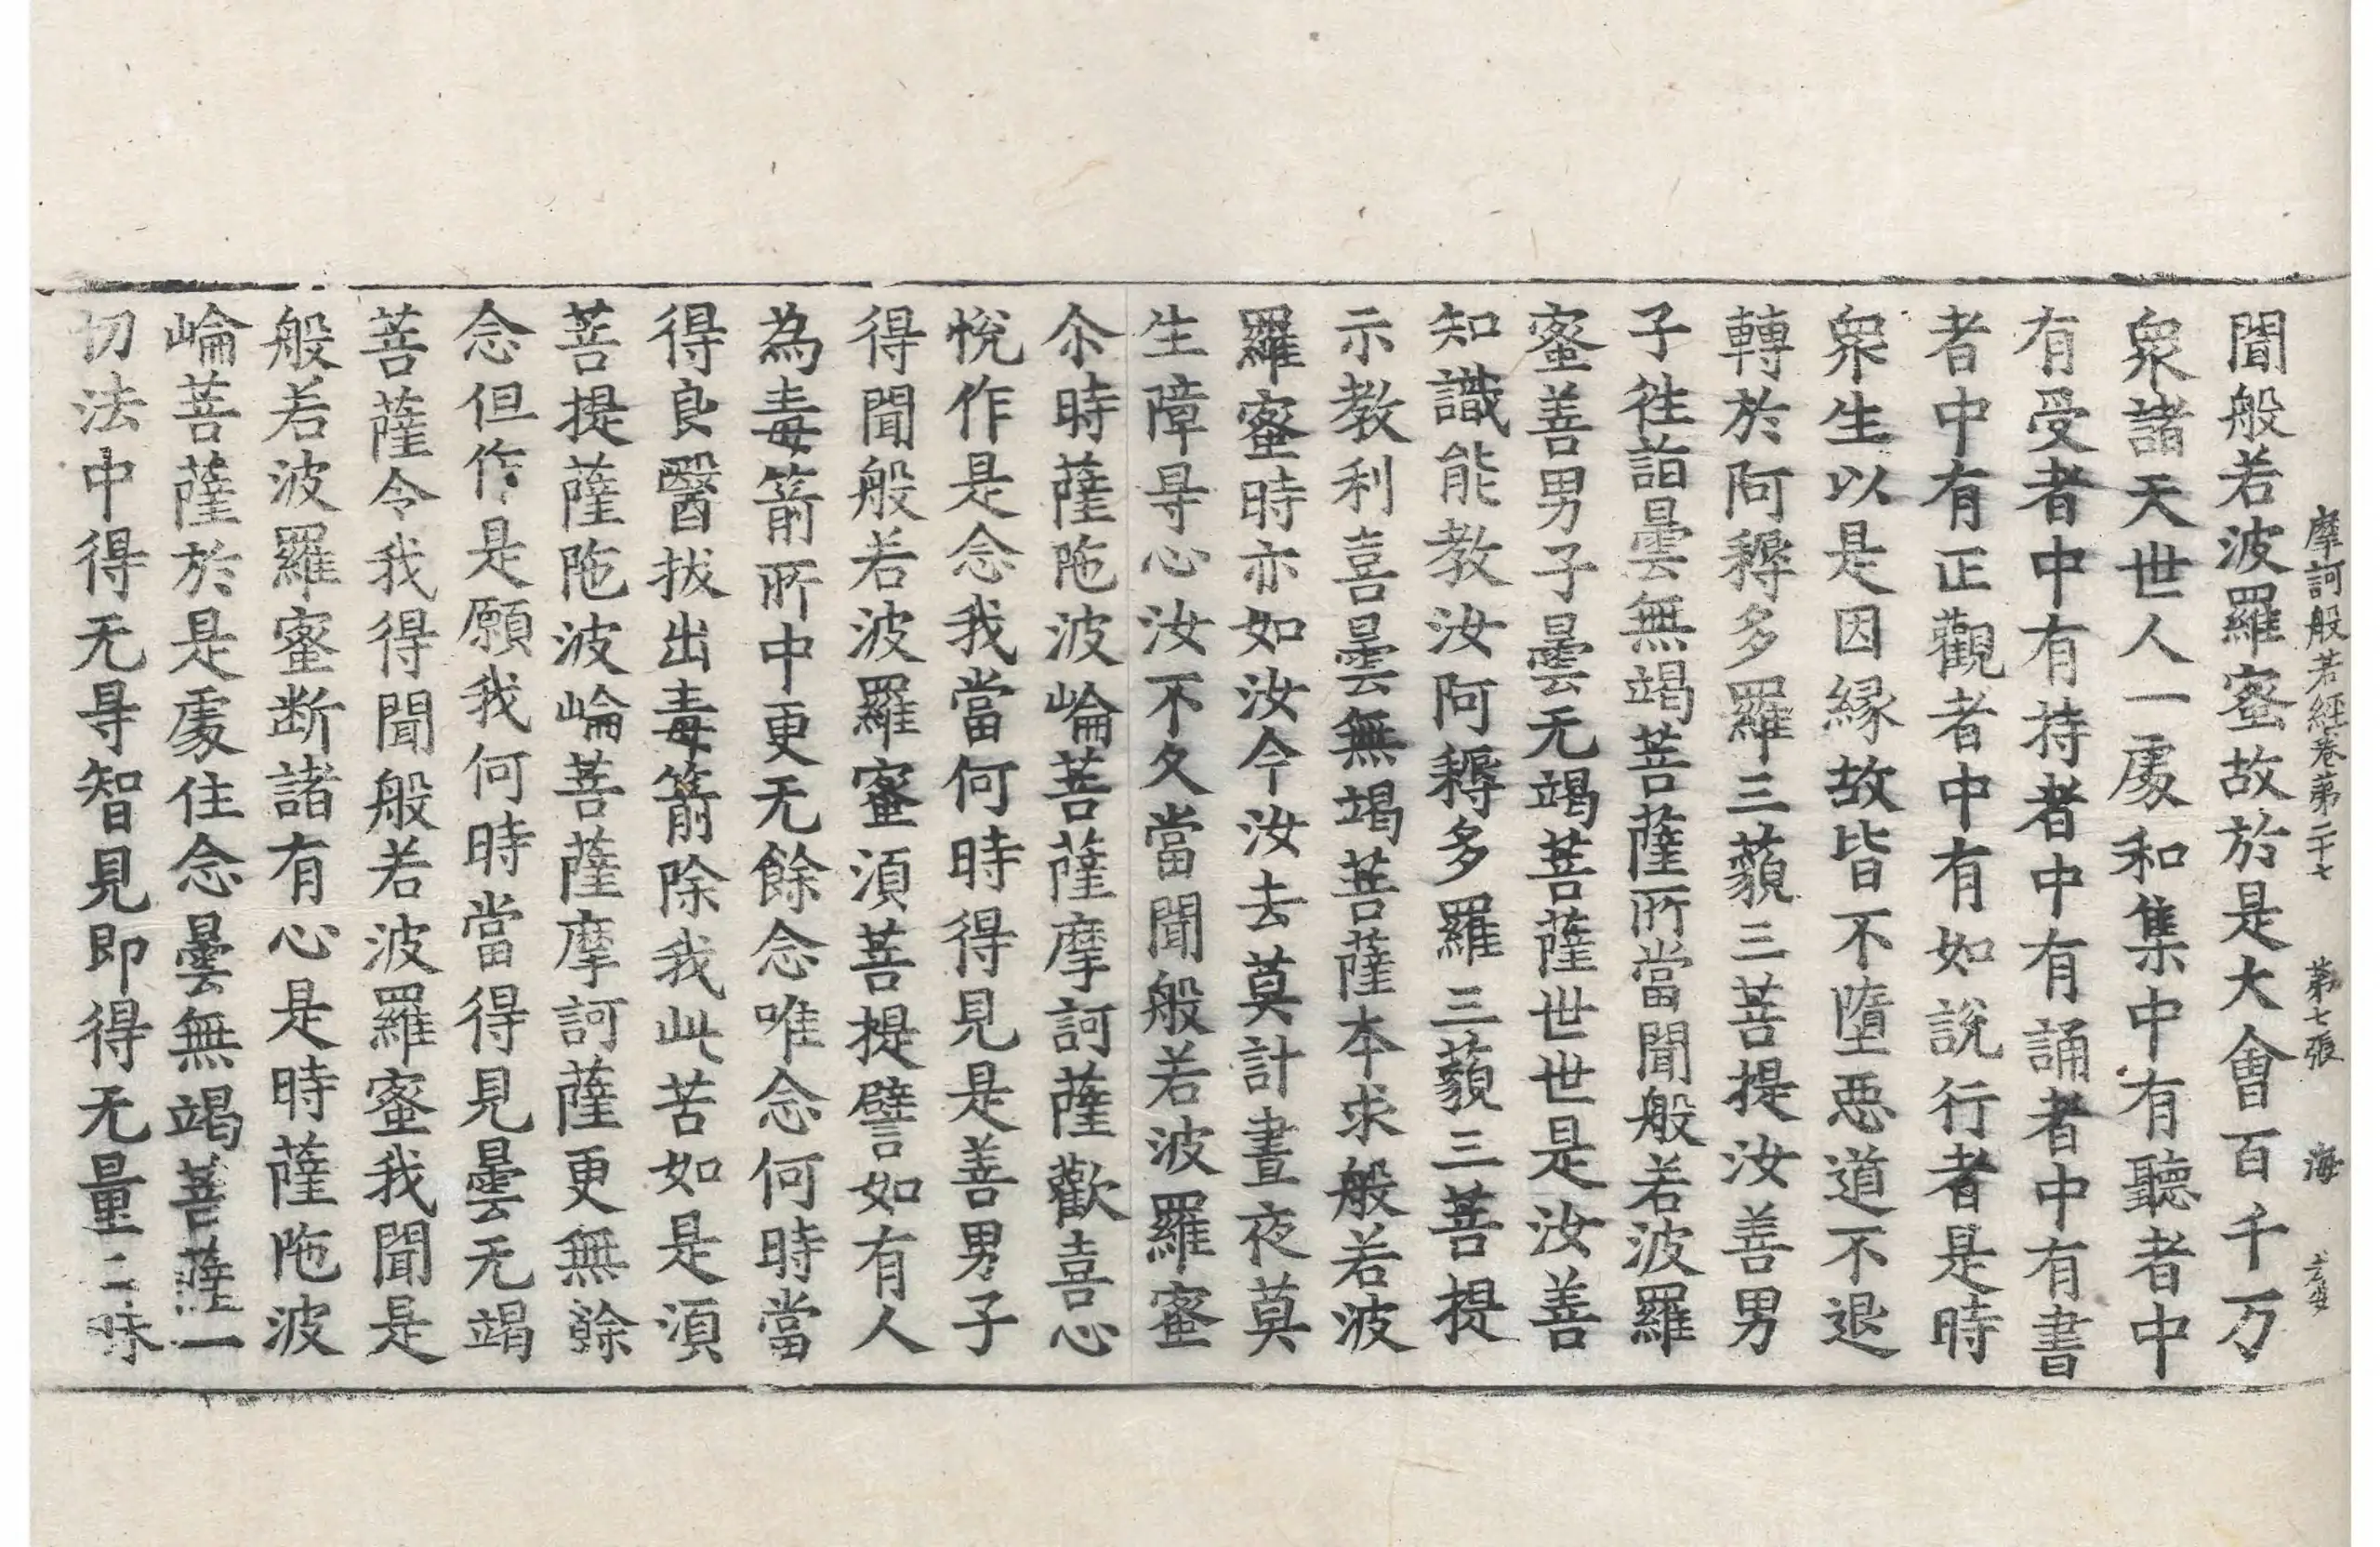 摩訶般若經卷第二十七 第七張 海
聞般若波羅蜜故於是大會百千万
衆諸天世人一處和集中有聽者中
有受者中有持者中有誦者中有書
者中有正觀者中有如說行者是時
衆生以是因縁故皆不墮惡道不退
轉於阿耨多羅三藐三菩提汝善男
子往詣曇無竭菩薩所當聞般若波羅
蜜善男子曇无竭菩薩世世是汝善
知識能教汝阿耨多羅三藐三菩提
示教利喜曇無竭菩薩本求般若波
羅蜜時亦如汝今汝去莫計晝夜莫
生障㝵心汝不久當聞般若波羅蜜
尒時薩陁波崘菩薩摩訶薩歡喜心
悅作是念我當何時得見是善男子
得聞般若波羅蜜湏菩提譬如有人
為毒箭所中更无餘念唯念何時當
得良醫拔出毒箭除我此苦如是湏
菩提薩陁波崘菩薩摩訶薩更無餘
念但作是願我何時當得見曇无竭
菩薩令我得聞般若波羅蜜我聞是
般若波羅蜜断諸有心是時薩陁波
崘菩薩於是處住念曇無竭菩薩一
切法中得无㝵智見即得无量三昧